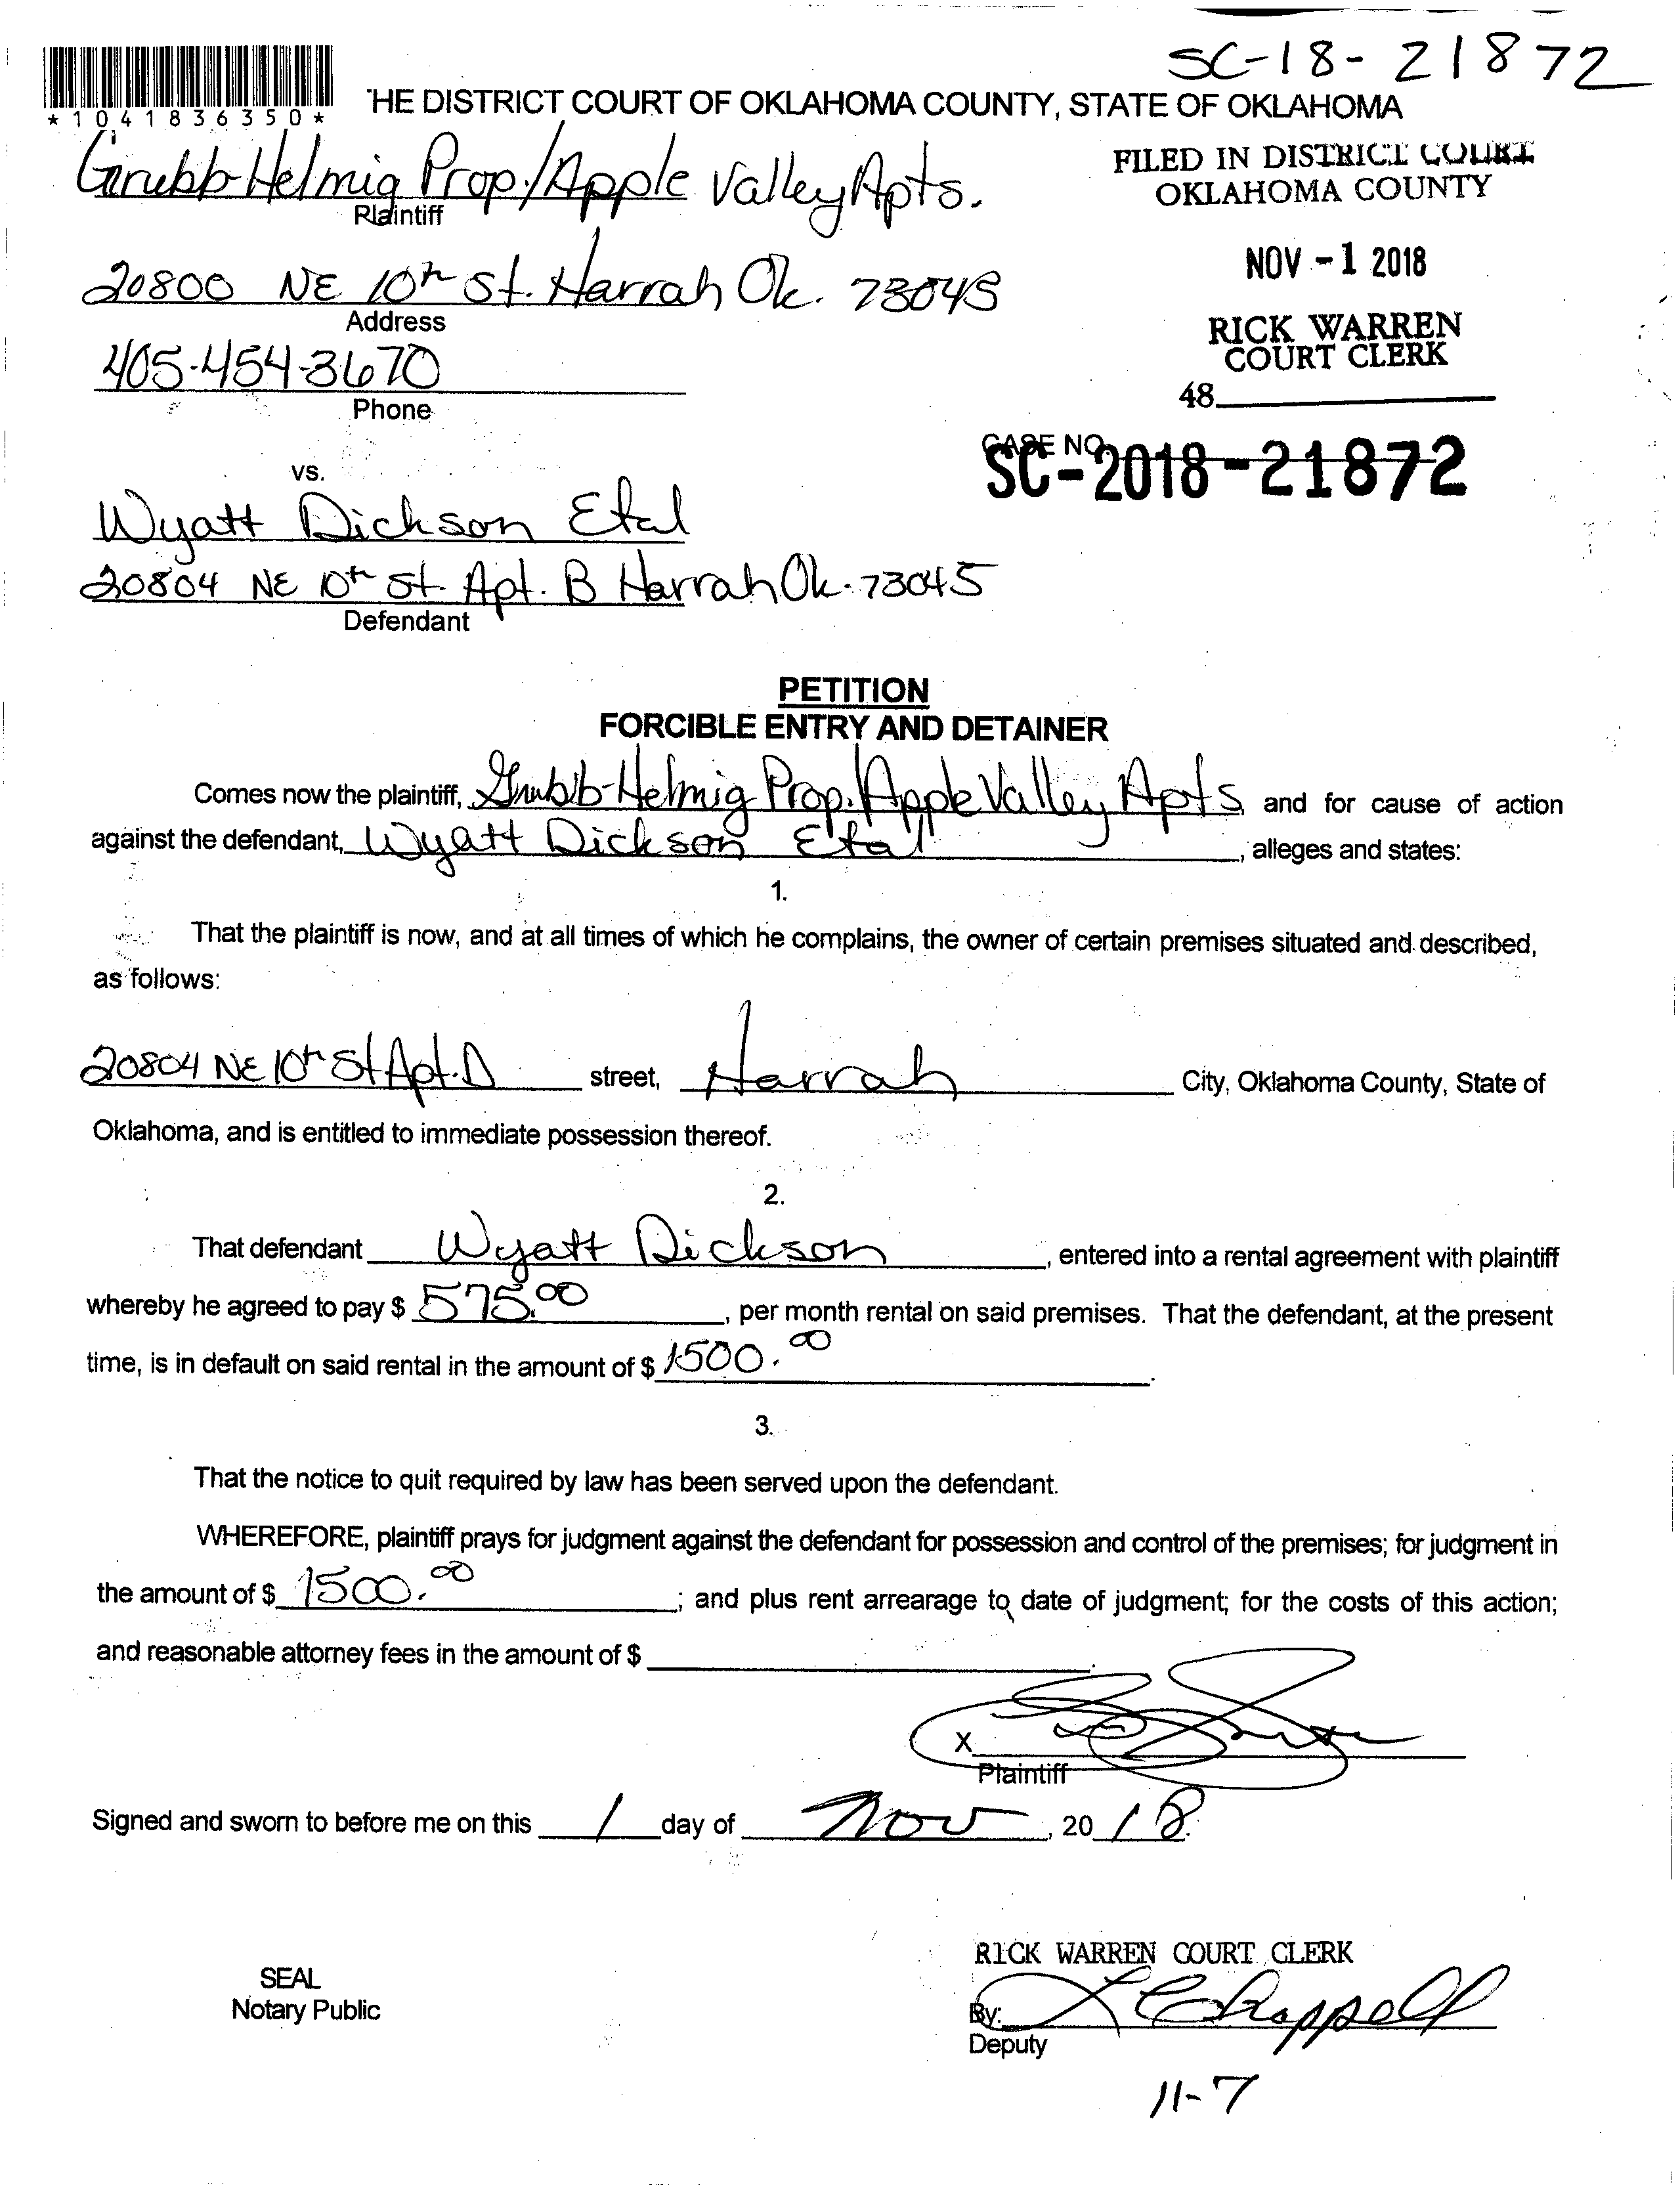 SC-18-21872
*1041836350*
'HE DISTRICT COURT OF OKLAHOMA COUNTY, STATE OF OKLAHOMA
Grubb-Helmig Prop./Apple Valley Apts.
Plaintiff
FILED IN DISTRICT COURT
OKLAHOMA COUNTY
20800 NE 10th St. Harrah Ok. 73045
Address
NOV -1 2018
405-454-3670
Phone
RICK WARREN
COURT CLERK
48
vs.
CASE NO.
SC-2018-21872
Wyatt Dickson Etal
20804 NE 10th St. Apt. B Harrah Ok. 73045
Defendant
PETITION
FORCIBLE ENTRY AND DETAINER
Comes now the plaintiff, Grubb-Helmig Prop./Apple Valley Apts, and for cause of action
against the defendant, Wyatt Dickson Etal, alleges and states:
1.
That the plaintiff is now, and at all times of which he complains, the owner of certain premises situated and described,
as follows:
20804 NE 10th St Apt. D street, Harrah City, Oklahoma County, State of
Oklahoma, and is entitled to immediate possession thereof.
2.
That defendant Wyatt Dickson, entered into a rental agreement with plaintiff
whereby he agreed to pay $ 575.00, per month rental on said premises. That the defendant, at the present
time, is in default on said rental in the amount of $ 1500.00.
3.
That the notice to quit required by law has been served upon the defendant.
WHEREFORE, plaintiff prays for judgment against the defendant for possession and control of the premises; for judgment in
the amount of $ 1500.00; and plus rent arrearage to date of judgment; for the costs of this action;
and reasonable attorney fees in the amount of $.
X
Plaintiff
Signed and sworn to before me on this 1 day of Nov, 2018.
RICK WARREN COURT CLERK
SEAL
Notary Public
By: L Chappell
Deputy
11-7